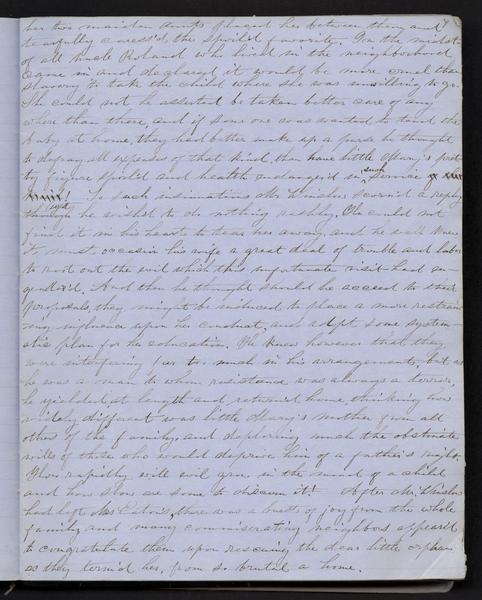 her two maiden aunts placed her between them and
tearfully caress'd the spoiled favorite. In the midst
of all Uncle Roland who lived in the neighborhood
came in and declared it would be more cruel than
slavery to take the child where she was unwilling to go.
She could not he asserted be taken better care of any
where than there, and if some one was wanted to tend the
baby at home, they had better make up a purse he thought
to defray all expenses of that kind than have little Mary's pret-
ty figure spoiled and health endanger'd in such service
To such insinuations Mr Winslow scorn'd a reply
though he wish'd to do nothing rashly, He could not
find it in his heart to tear her away, and he well knew
it must occasion his wife a great deal of trouble and labor
to root out the evil which this unfortunate visit had en-
gender'd. And then he thought should he accede to their
proposals, they might be induced to place a more restrain-
ing influence upon her conduct, and adopt some system-
atic plan for her education. He knew however that they
were interfering far too much in his arrangements, but as
he was a man to whom resistance was always a terror,
he yielded at length and return'd home, thinking how
widely different was little Mary's mother from all
others of the family, and deploring much the obstinate
wills of those who would deprive him of a father's right.
How rapidly will evil grow in the mind of a child
and how slow are some to discern it! After Mr. Winslow
had left there was a burst of joy from the whole
family, and many commiserating neighbors appear'd
to congratulate them upon rescuing the dear little orphan
as they term'd her, from so brutal a home.